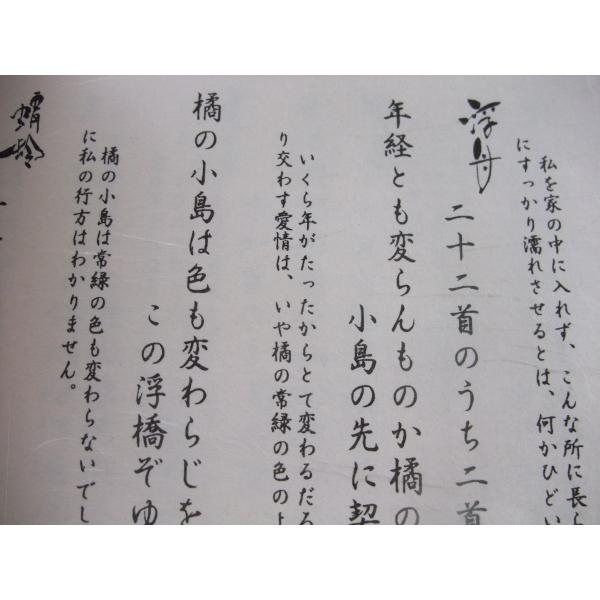 私を家の中に入れず、こんな所に長ら
にすっかり濡れさせるとは、何かひどい
浮舟
二十二首のうち二首
年経とも変らんものか橘の
小島の先に契
いくら年がたったからとて変わるだろ
り交わす愛情は、いや橘の常緑の色のよ
橘の小島は色も変わらじを
この浮橋ぞゆ
橘の小島は常緑の色も変わらないでし
に私の行方はわかりません。
蜻蛉